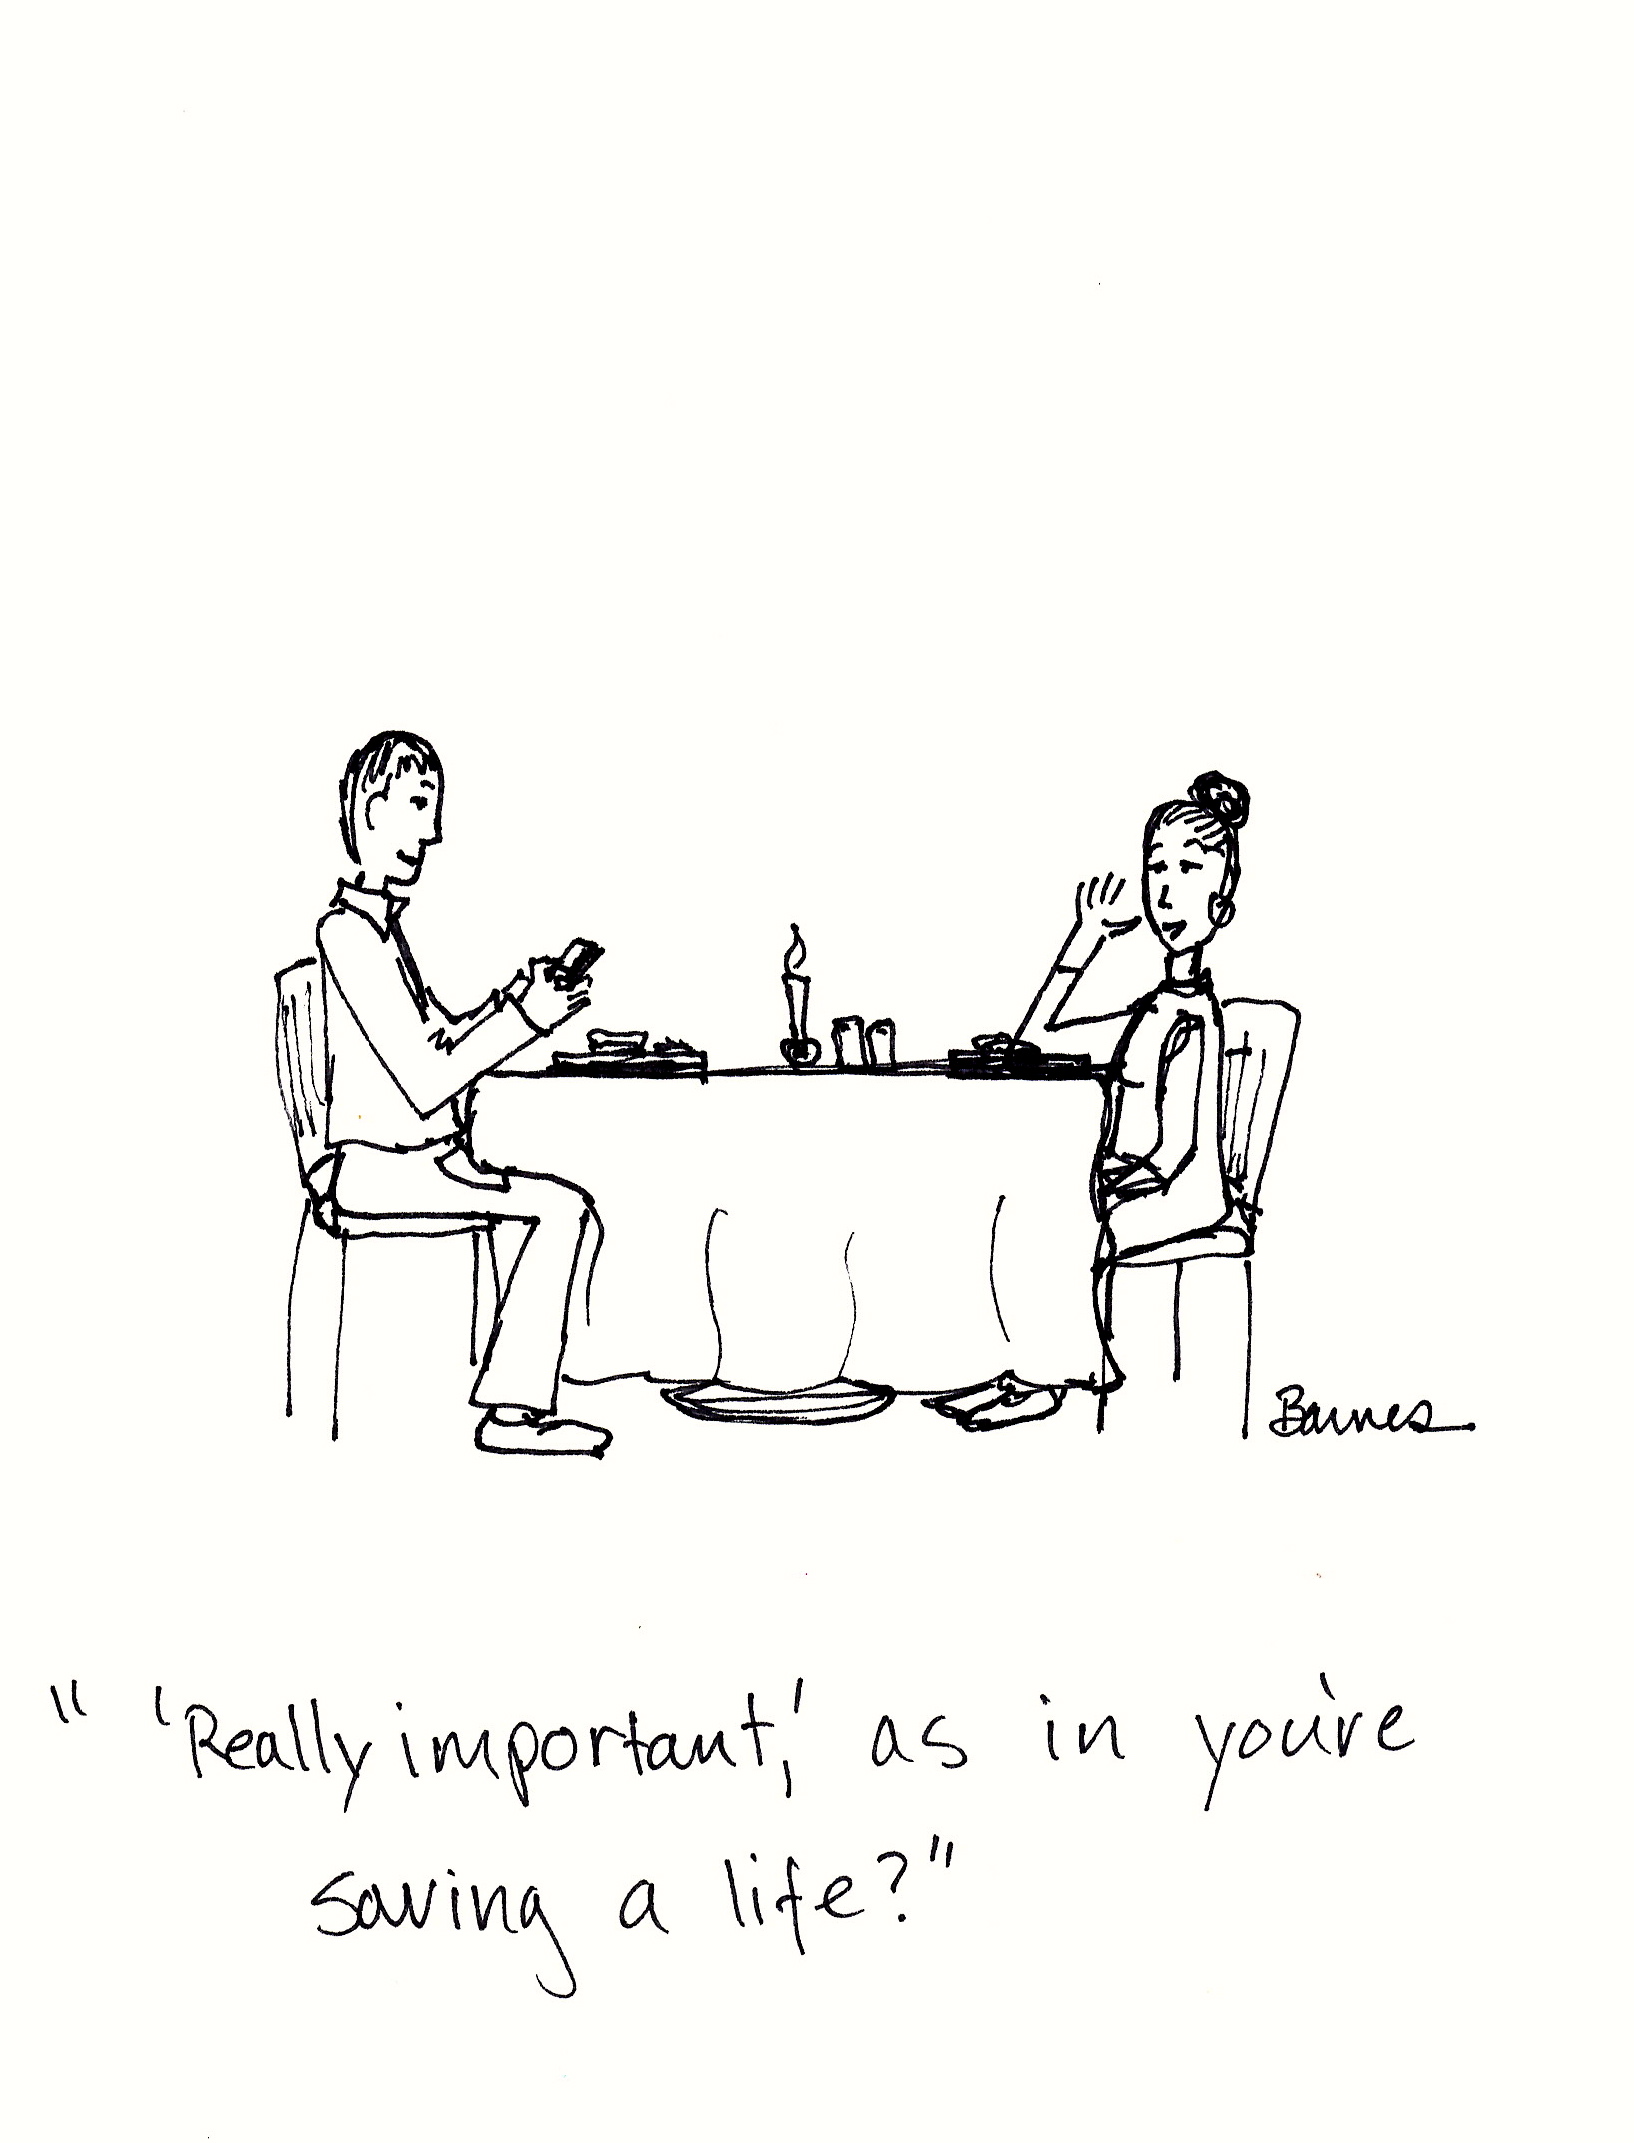 Barnes
" 'Really important,' as in you're
saving a life?"